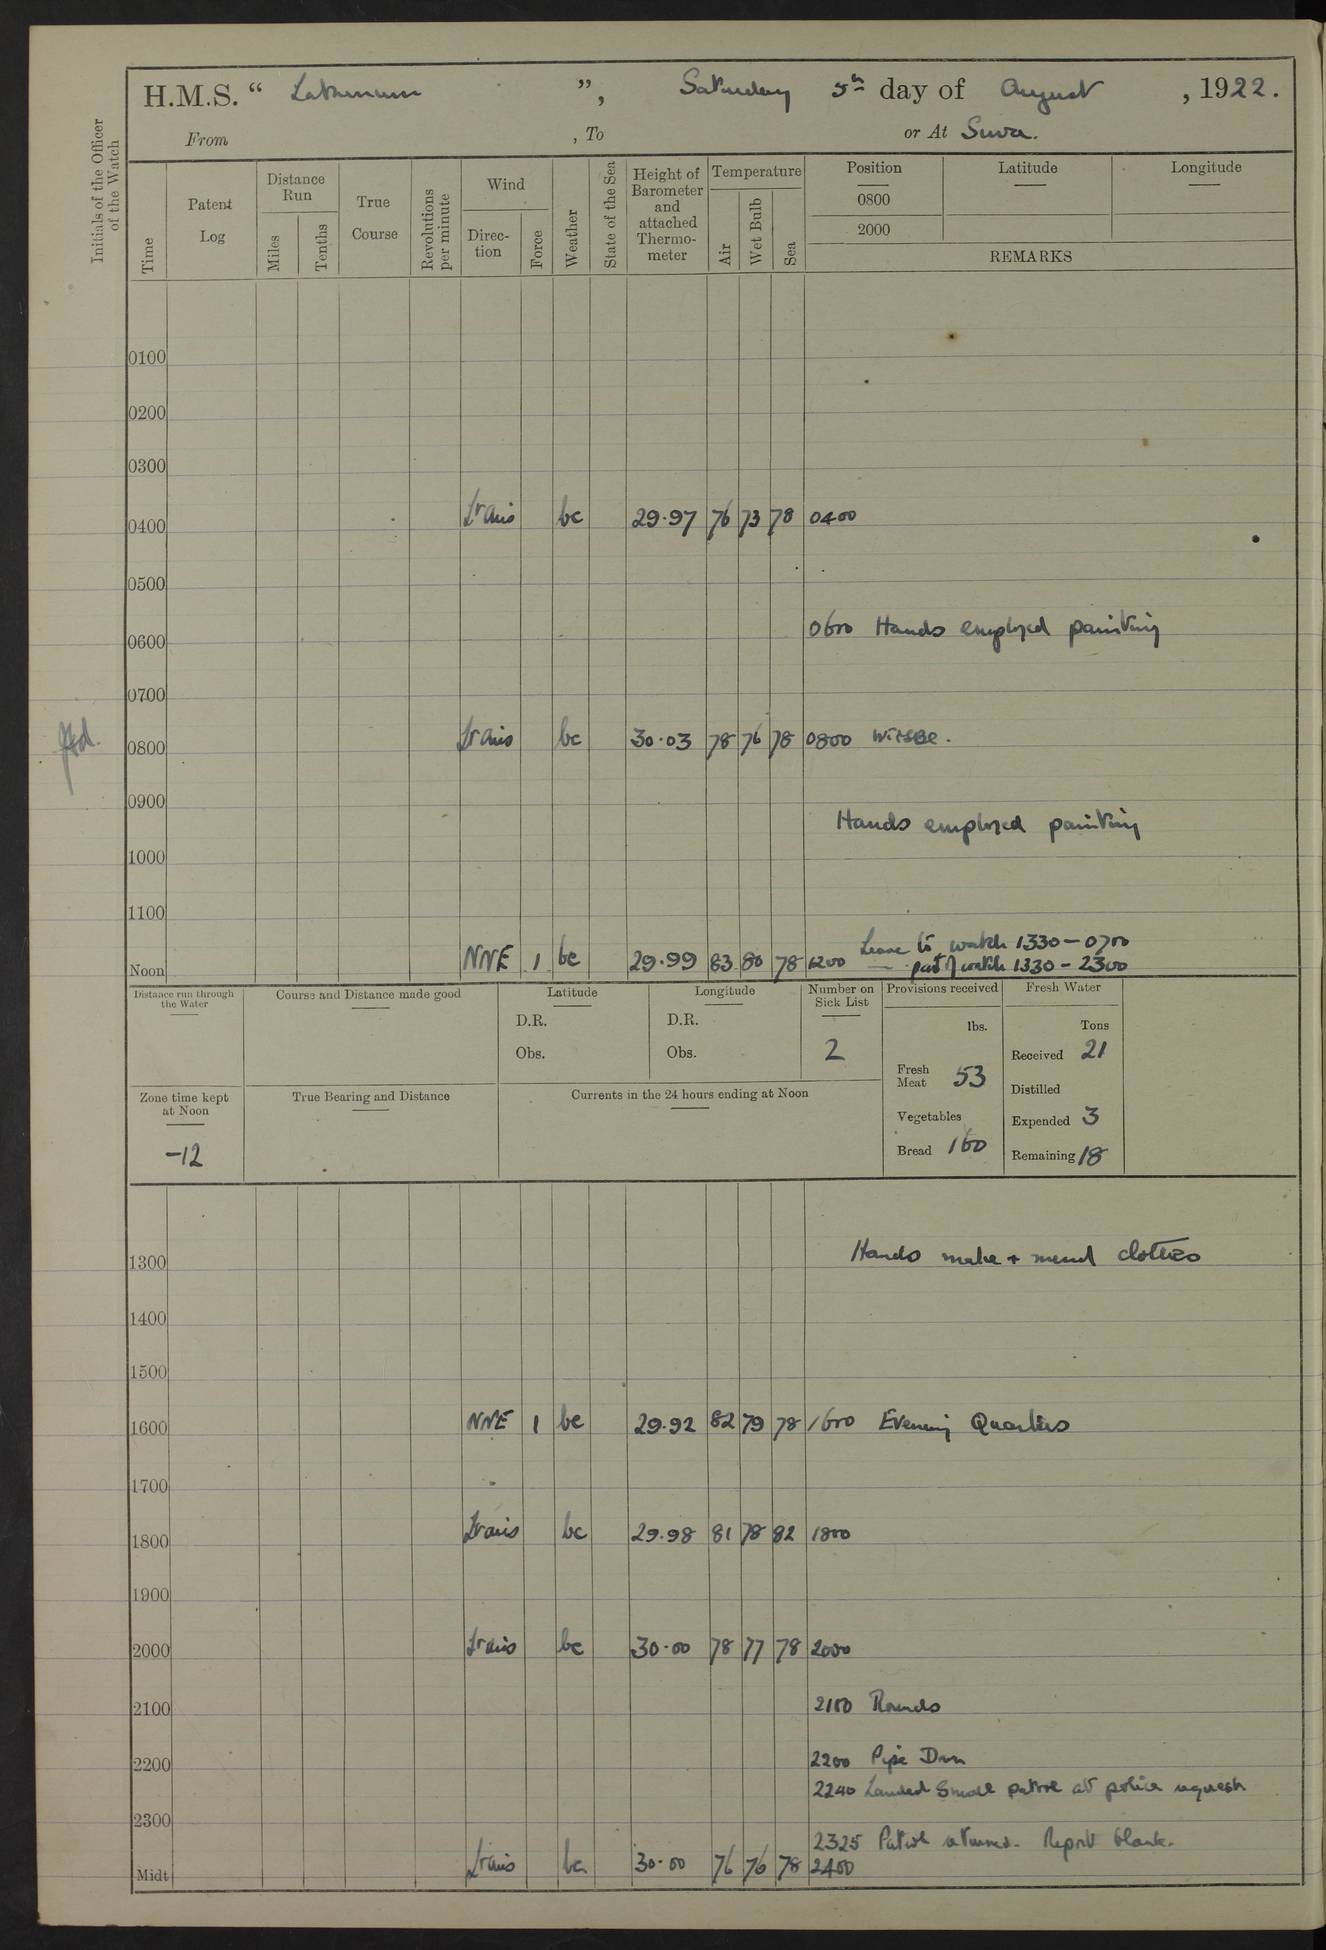 H.M.S. “ Laburnum ”, Saturday 5th day of August , 1922.
From , To or At Suva.
Initials of the Officer of the Watch
Time
Patent Log
Distance Run
Miles
Tenths
True Course
Revolutions per minute
Wind
Direc-tion
Force
Weather
State of the Sea
Height of Barometer and attached Thermo-meter
Temperature
Air
Wet Bulb
Sea
Position
0800
2000
Latitude
Longitude
REMARKS
0100
0200
0300
0400 Lt airs bc 29.97 76 73 78 0400
0500
0600 0600 Hands employed painting
0700
0800 Lt airs bc 30.03 78 76 78 0800
0900 Hands employed painting
1000
1100
Leave to watch 1330 - 0700
Noon NNE 1 bc 29.99 83 80 78 1200 — part of watch 1330 - 2300
Distance run through the Water
Course and Distance made good
Latitude
D.R.
Obs.
Longitude
D.R.
Obs.
Number on Sick List
2
Provisions received
lbs.
Fresh Meat 53
Vegetables
Bread 160
Fresh Water
Tons
Received 21
Distilled
Expended 3
Remaining 18
Zone time kept at Noon
-12
True Bearing and Distance
Currents in the 24 hours ending at Noon
1300 Hands make + mend clothes
1400
1500
1600 NNE 1 bc 29.92 82 79 78 1600 Evening Quarters
1700
1800 Lt airs bc 29.98 81 78 82 1800
1900
2000 Lt airs bc 30.00 78 77 78 2000
2100 2100 Rounds
2200 2200 Pipe Down
2240 Landed small patrol at police request
2300
2325 Patrol returned. Report blank.
Midt Lt airs bc 30.00 76 76 78 2400